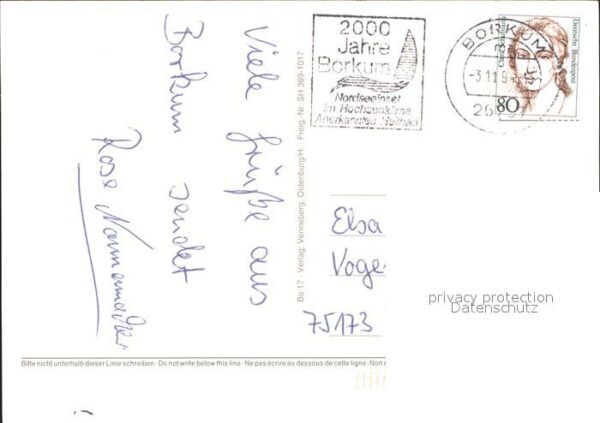 Viele Grüße aus
Borkum sendet
Rose
Bo 17 Verlag: Venneberg, Oldenburg/H. · Freig. Nr. SH 369-1017
2000
Jahre
Borkum
Nordseeinsel
im Hochseeklima
Anerkanntes Heilbad
BORKUM
-3.11.9
Deutsche Bundespost
80
Elsa
Voge
75173
privacy protection
Datenschutz
Bitte nicht unterhalb dieser Linie schreiben · Do not write below this line · Ne pas écrire au dessous de cette ligne · Non s